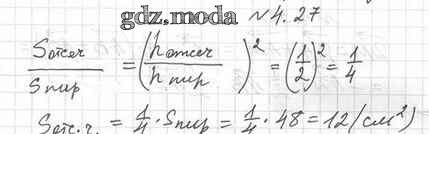 gdz.moda №4.27
Sотсеч/Sпир = (hотсеч/hпир)² = (1/2)² = 1/4
Sотс.ч. = 1/4 · Sпир = 1/4 · 48 = 12 (см²)